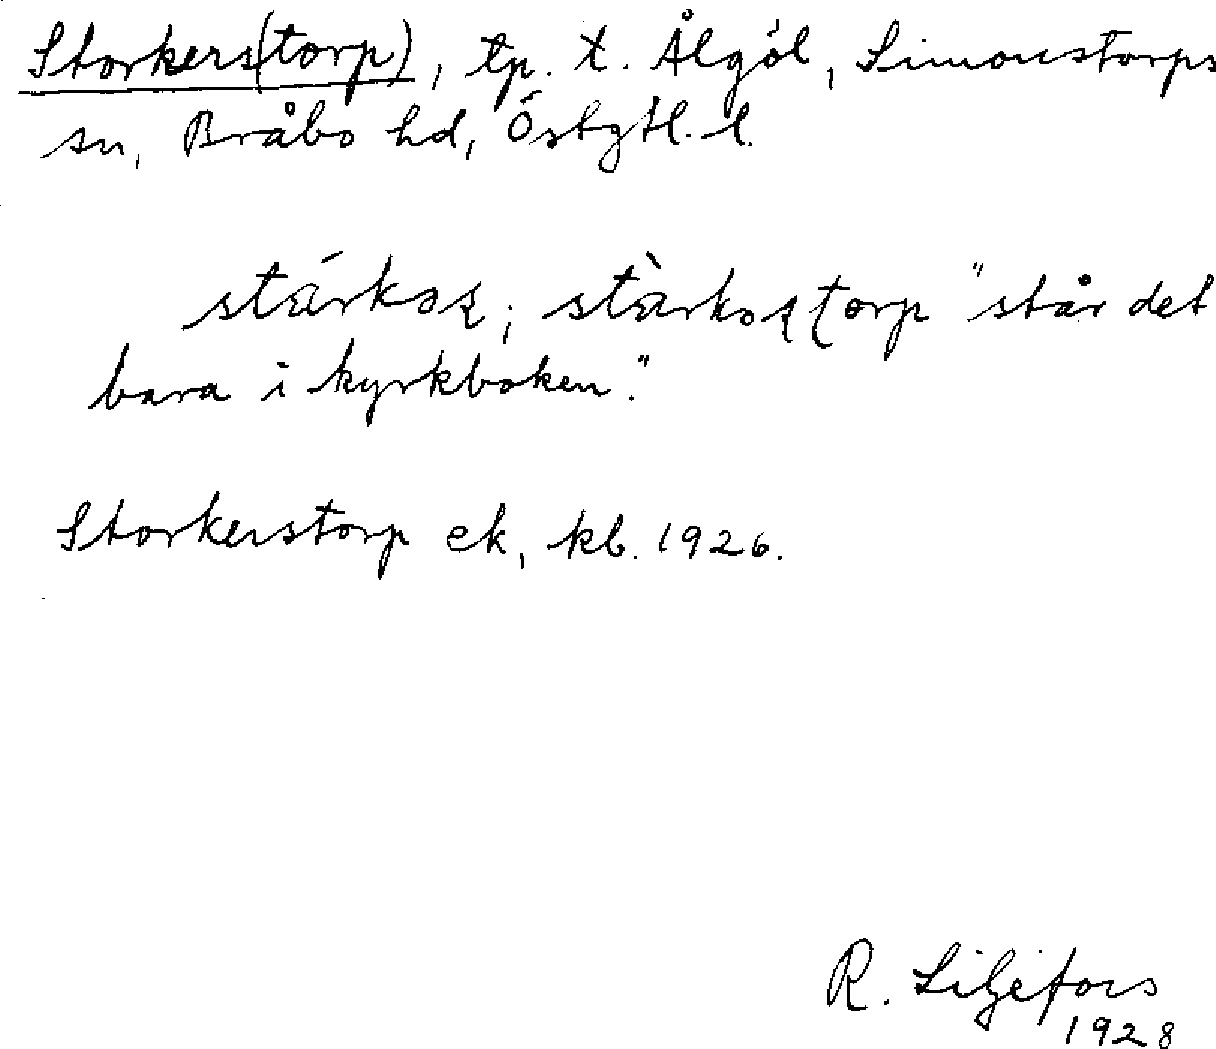 Storkers(torp), tp. t. Ålgöl, Simonstorps
sn, Bråbo hd, Östgtl. l.
"står det
bara i kyrkboken."
Storkerstorp ek, kb. 1926.
R. Liljefors
1928